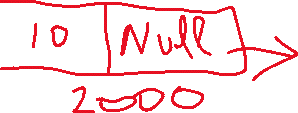 10 Null
2000